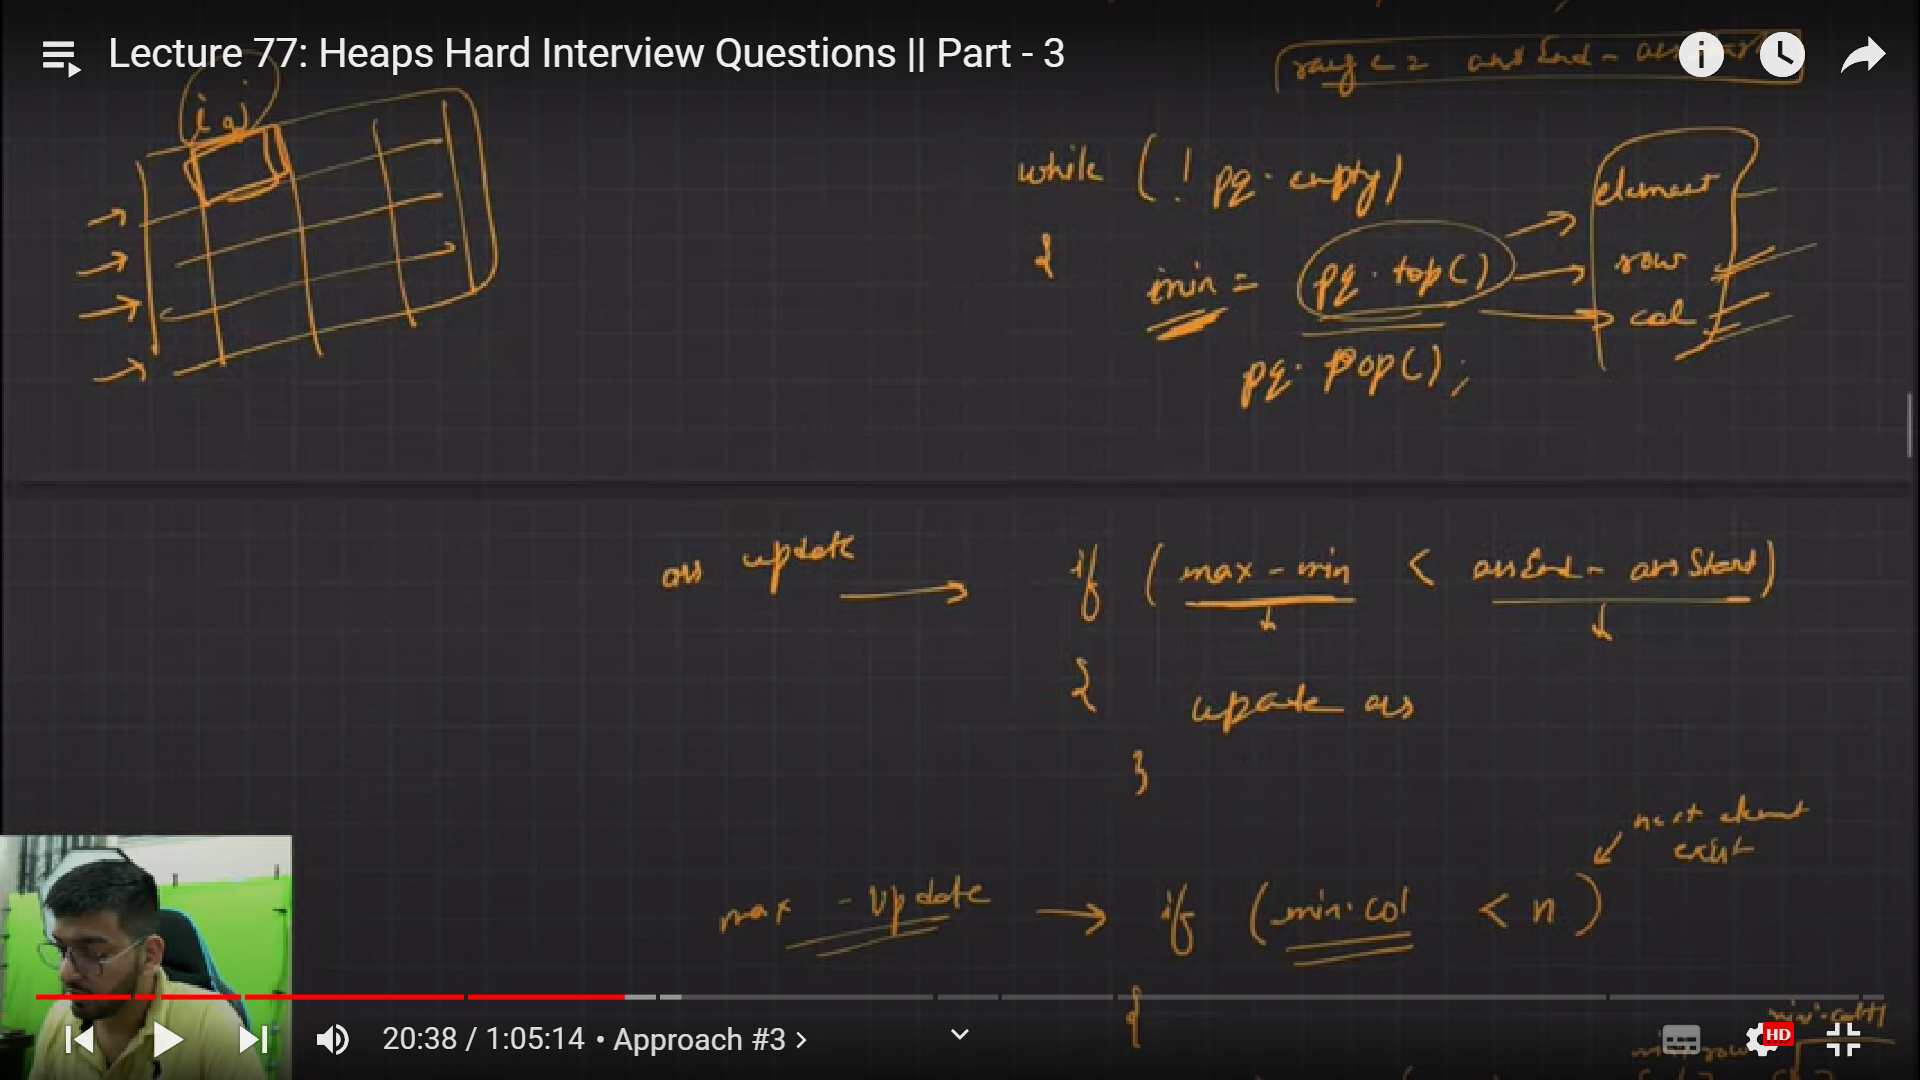 Lecture 77: Heaps Hard Interview Questions || Part - 3
ansEnd -
i j
while ( ! pq. empty)
{
min = pq. top()
element
row
col
pq. pop();
ans update
if ( max - min < ansEnd - ansStart)
{
update ans
}
next element
exist
max - update
if (min. col < n )
{
20:38 / 1:05:14 • Approach #3 ›
HD